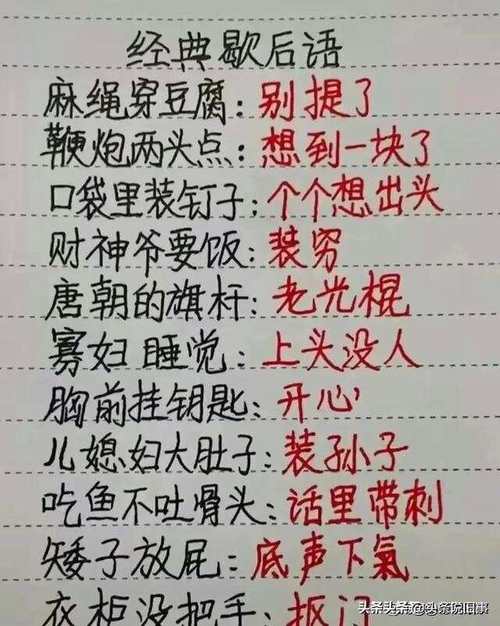 经典歇后语
麻绳穿豆腐：别提了
鞭炮两头点：想到一块了
口袋里装钉子：个个想出头
财神爷要饭：装穷
唐朝的旗杆：老光棍
寡妇睡觉：上头没人
胸前挂钥匙：开心
儿媳妇大肚子：装孙子
吃鱼不吐骨头：话里带刺
矮子放屁：底声下氣
衣柜没把手：抠门